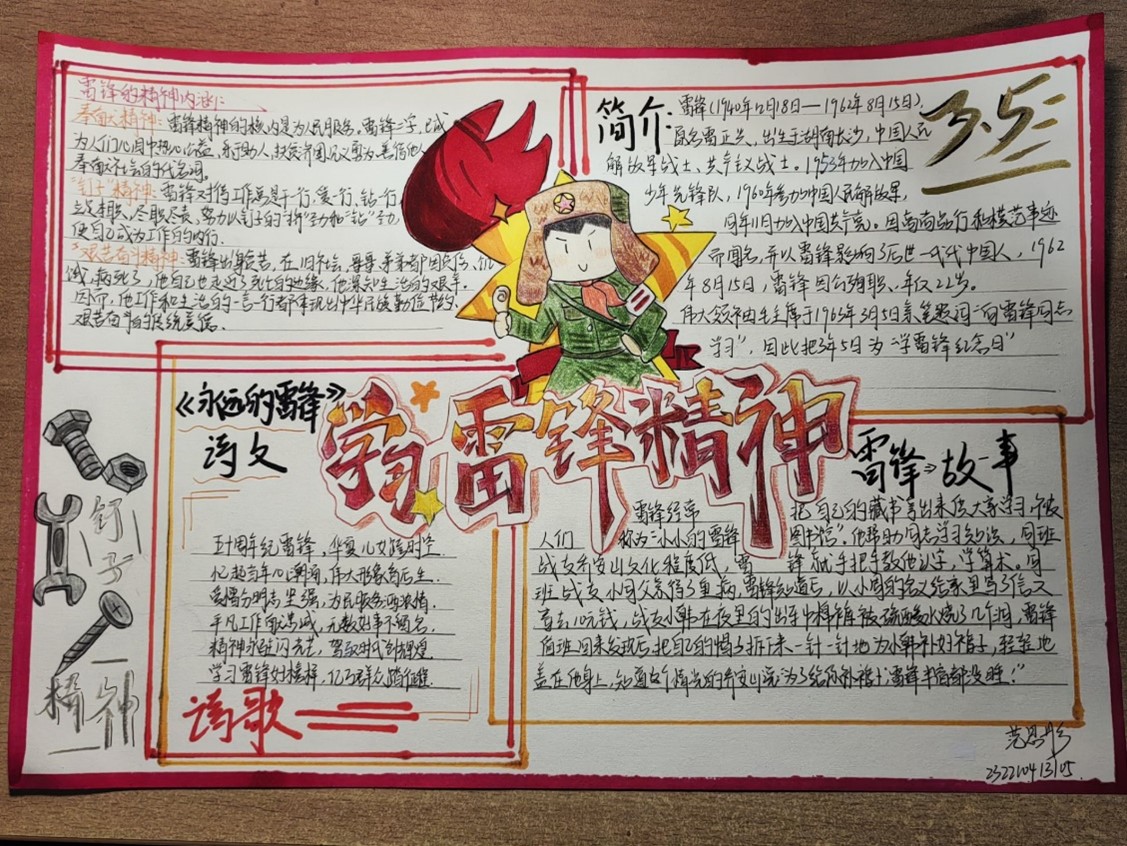 雷锋的精神内涵:
奉献精神:雷锋精神的核心是为人民服务。雷锋二字,已成
为人们心目中热心公益、乐于助人、扶贫济困、见义勇为、善待他人
奉献社会的代名词。
"钉子"精神:雷锋对待工作总是干一行,爱一行,钻一行
立足本职、尽职尽责,努力以钉子的"挤"劲和"钻"劲,
使自己成为工作的内行。
"艰苦奋斗"精神:雷锋出身贫苦,在旧社会,
病死了,他自己也走近了死亡的边缘,他深知生活的艰辛。
因而,他工作和生活的一言一行都体现出中华民族勤俭节约、
艰苦奋斗的传统美德。
简介:
雷锋(1940年12月18日—1962年8月15日),
原名雷正兴,出生于湖南长沙,中国人民
解放军战士、共产主义战士。1953年加入中国
少年先锋队,1960年参加中国人民解放军,
同年11月加入中国共产党。因高尚品行和模范事迹
而闻名,并以雷锋影响了后世一代代中国人,1962
年8月15日,雷锋因公殉职、年仅22岁。
伟大领袖毛主席于1963年3月5日亲笔题词"向雷锋同志
学习",因此把3年5日为"学雷锋纪念日"
3.5
学习雷锋精神
《永远的雷锋》
诗文
五十周年纪雷锋,华夏儿女
忆起当年心潮涌,伟人形象
爱憎分明志坚强,为民服务
平凡工作
精神永驻闪光芒,
学习雷锋好榜样,亿万群众
诗歌
钉子
精神
雷锋→故事
雷锋经常
把自己的藏书拿出来供大家学习,被
人们
称为"小小的雷锋
图书馆"。他帮助同志学习知识,同班
战友乔安山文化程度低,雷
锋就手把手教他认字,学算术。同
班战友小周父亲得了重病,雷锋知道后,以小周的名义给家里写了信又
寄去10元钱,战友小韩在夜里的出车中棉裤被硫酸水烧了几个洞,雷锋
值班回来发现后,把自己的帽子拆下来一针一针地为小韩补好裤子,轻轻地
盖在他身上,
乔安山说:"为了给你补裤子,雷锋半宿都没睡!"
范思彤
232210413105